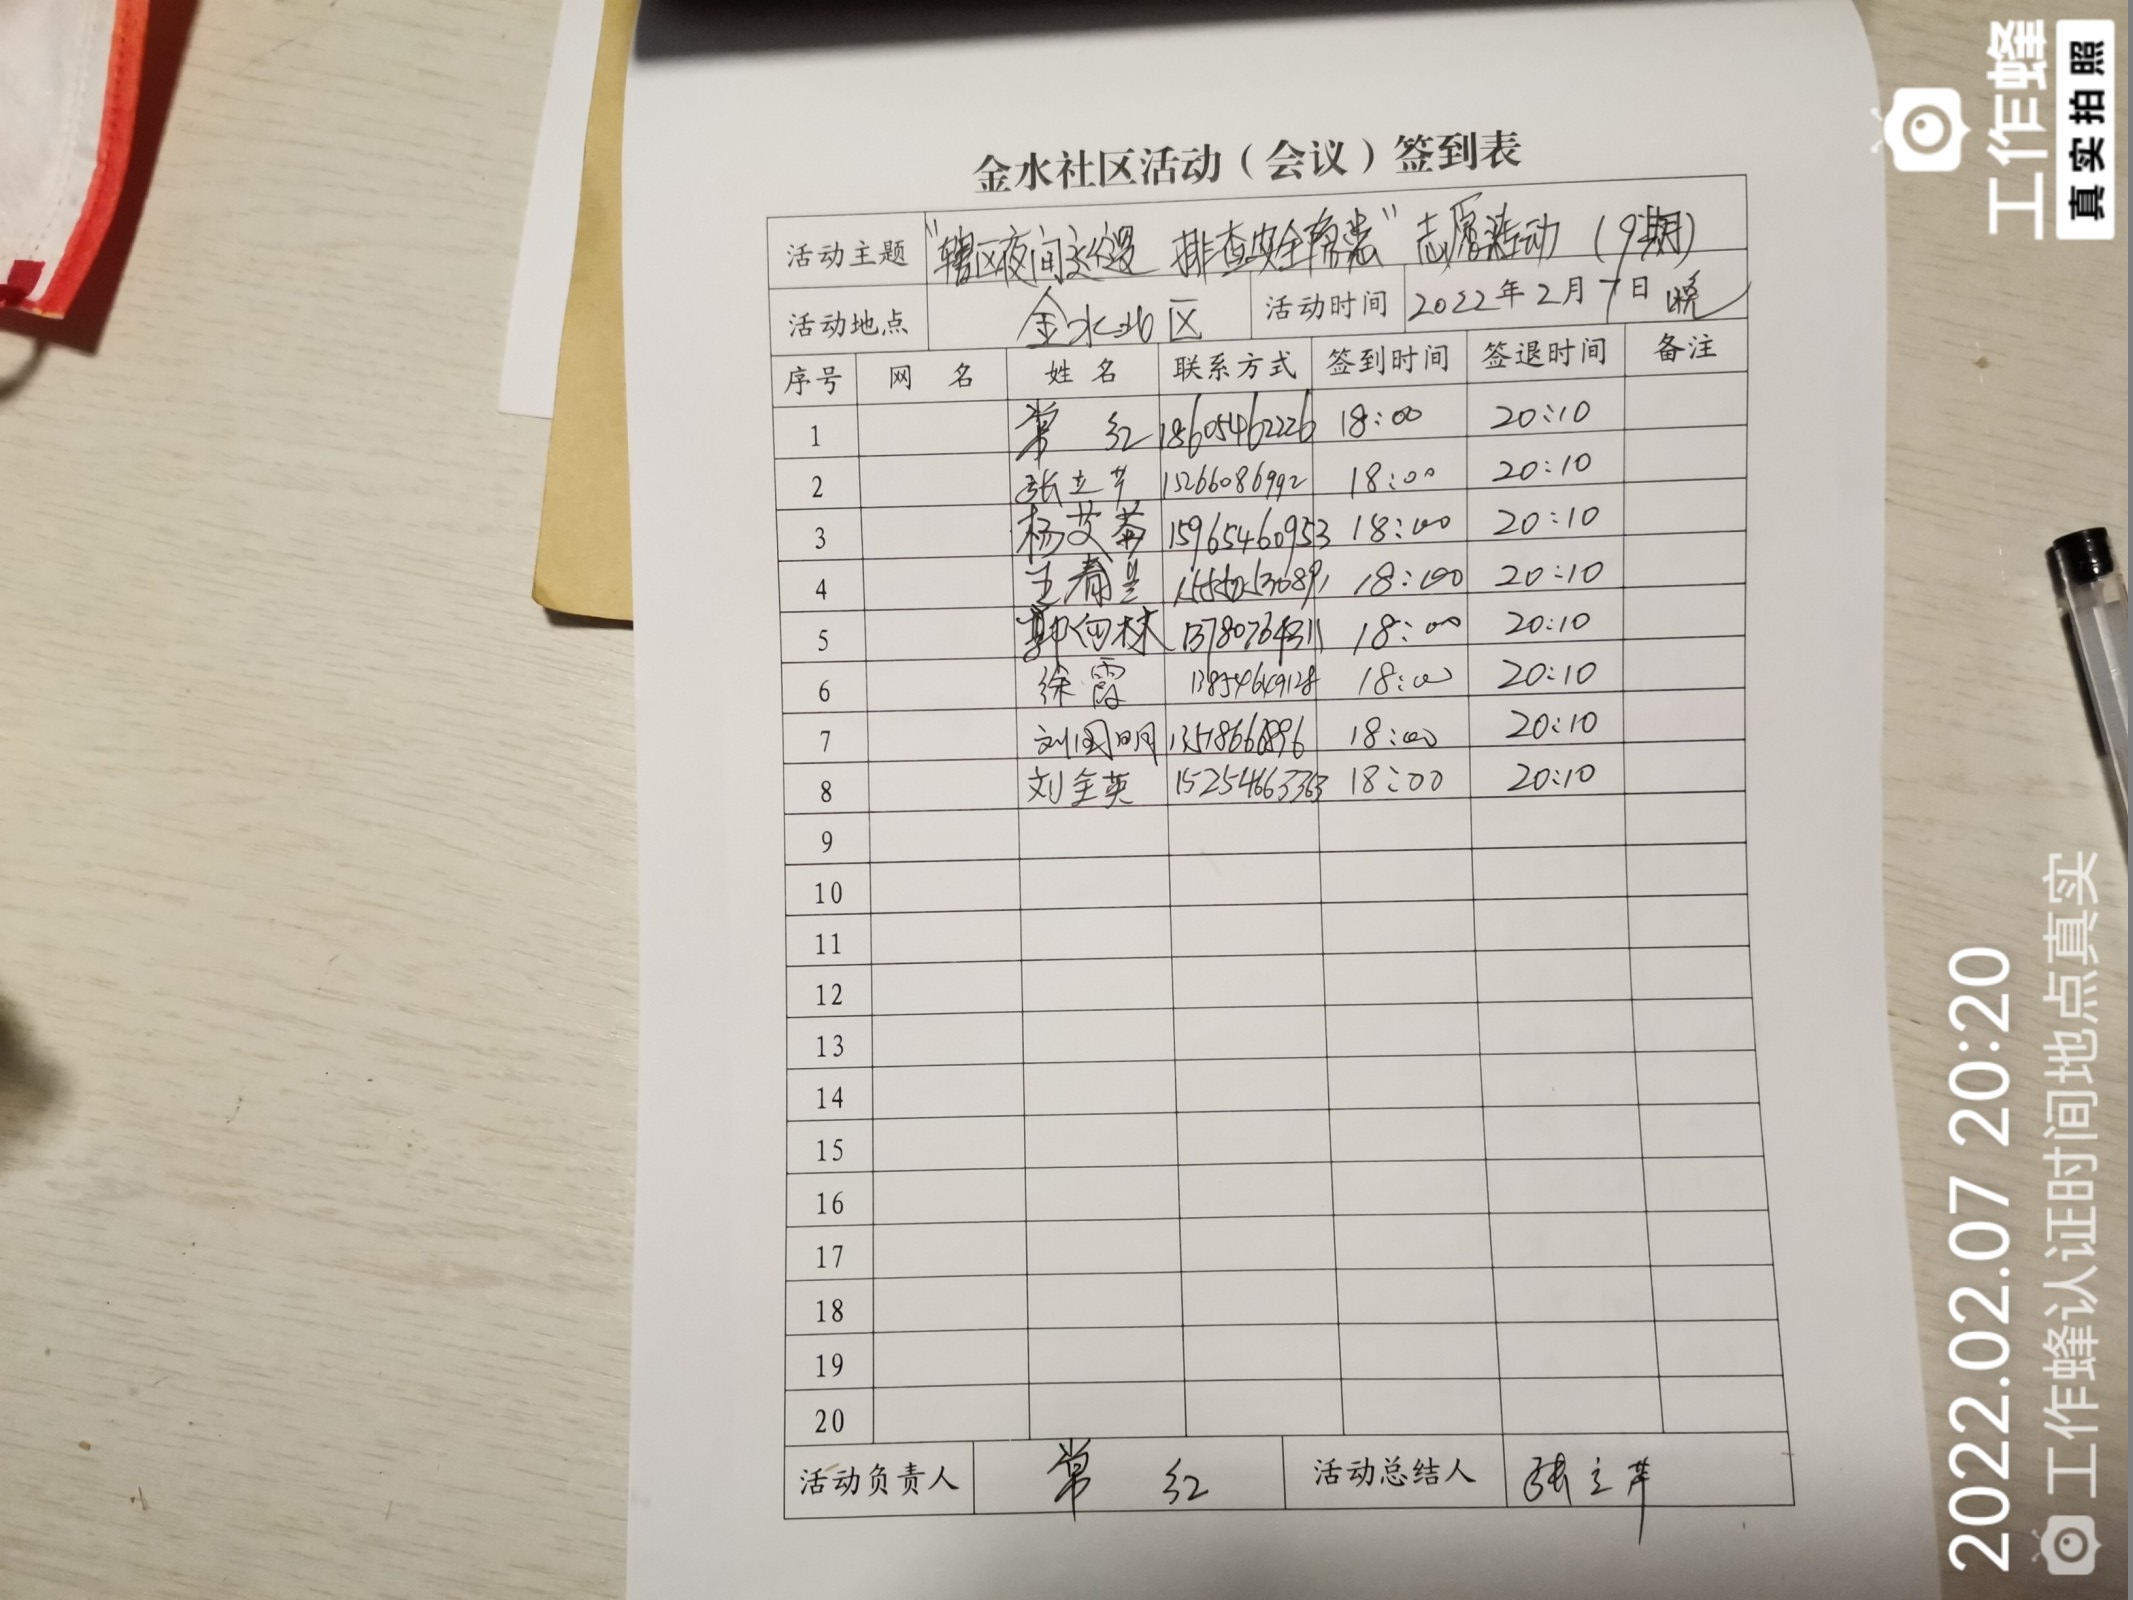 金水社区活动（会议）签到表
活动主题 "辖区夜间巡逻 排查安全隐患" 志愿活动（9期）
活动地点 金水社区 活动时间 2022年2月7日 晚
序号 网 名 姓 名 联系方式 签到时间 签退时间 备注
1 常 红 18605462226 18:00 20:10
2 张立芹 15266086992 18:00 20:10
3 杨艾菊 15965460953 18:00 20:10
4 王春 18:00 20:10
5 13780764311 18:00 20:10
6 徐霞 18:00 20:10
7 刘国明 18:00 20:10
8 刘金英 15254663363 18:00 20:10
9
10
11
12
13
14
15
16
17
18
19
20
活动负责人 常 红 活动总结人 张立芹
工作蜂
真实拍照
2022.02.07 20:20
工作蜂认证时间地点真实